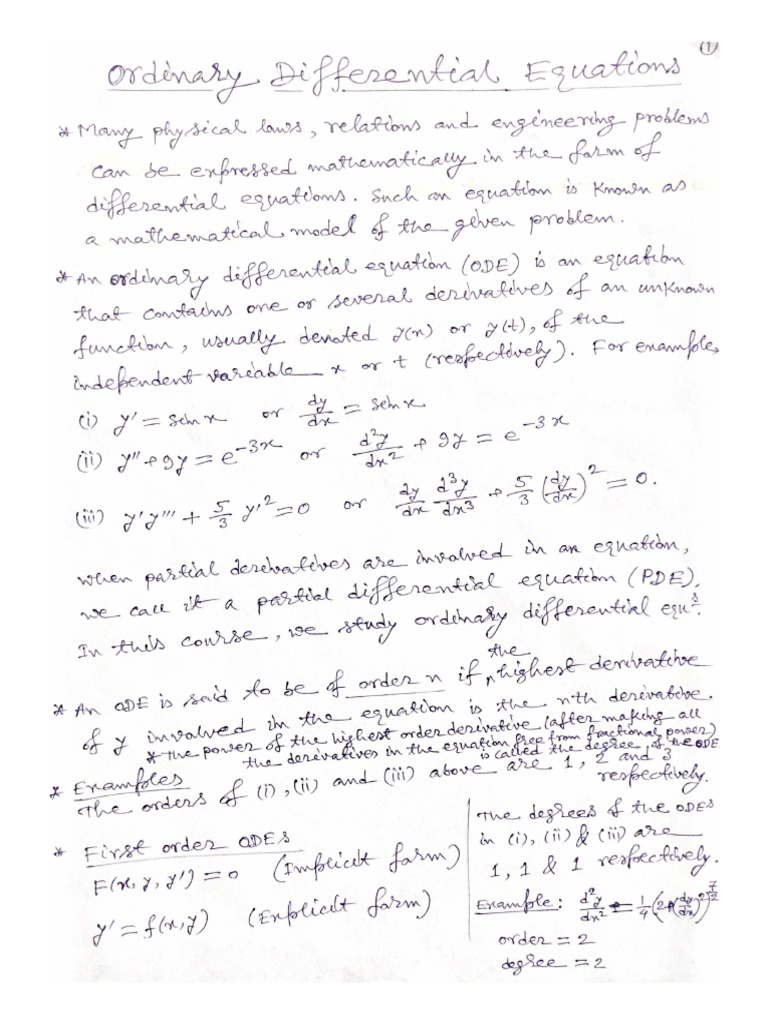 (1)
Ordinary Differential Equations
* Many physical laws, relations and engineering problems
can be expressed mathematically in the form of
differential equations. Such an equation is known as
a mathematical model of the given problem.
* An ordinary differential equation (ODE) is an equation
that contains one or several derivatives of an unknown
function, usually denoted y(x) or y(t), of the
independent variable x or t (respectively). For example,
(i) y' = sin x or dy/dx = sin x
(ii) y'' + 9y = e^{-3x} or d²y/dx² + 9y = e^{-3x}
(iii) y' y''' + 5/3 y'² = 0 or dy/dx d³y/dx³ + 5/3 (dy/dx)² = 0.
When partial derivatives are involved in an equation,
we call it a partial differential equation (PDE).
In this course, we study ordinary differential equⁿˢ.
* An ODE is said to be of order n if the highest derivative
of y involved in the equation is the n'th derivative.
* The power of the highest order derivative (after making all
the derivatives in the equation free from fractional power)
is called the degree of the ODE
* Examples
The orders of (i), (ii) and (iii) above are 1, 2 and 3
respectively.
* First order ODEs
F(x, y, y') = 0 (Implicit form)
y' = f(x, y) (Explicit form)
The degrees of the ODEs
in (i), (ii) & (iii) are
1, 1 & 1 respectively.
Example: d²y/dx² = 1/4
order = 2
degree = 2